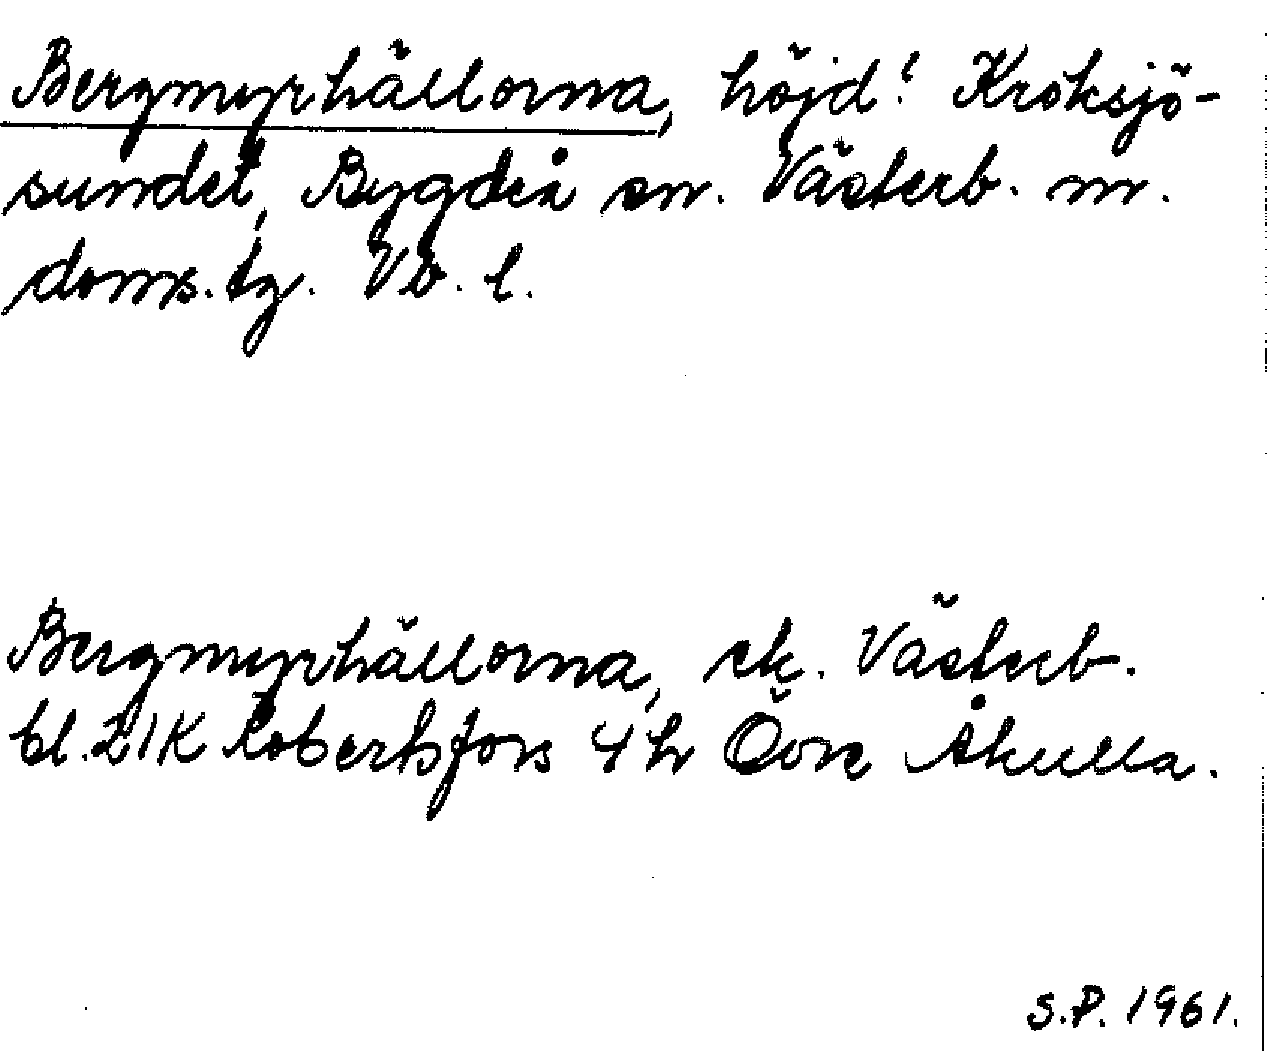 Bergmyrhällorna, höjd! Kroksjö-
sundet, Bygdeå sn. Västerb. nr.
doms.tg. Vb. l.
Bergmyrhällorna, ek. Västerb.
bl. 21K Robertsfors 4h Övre Åkulla.
S.P. 1961.